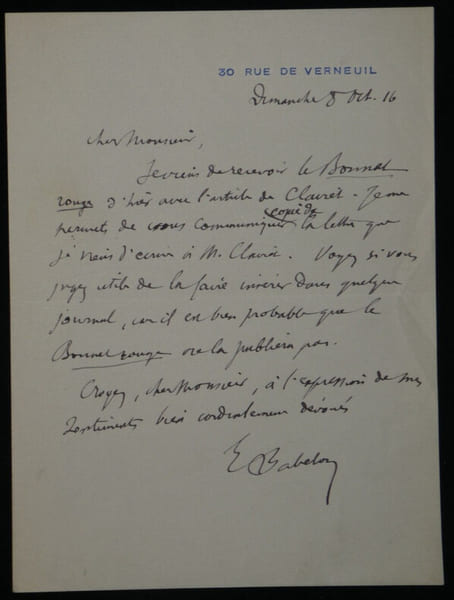 30 RUE DE VERNEUIL
Dimanche 8 Oct. 16
cher Monsieur,
Je viens de recevoir le Bonnet
rouge d'hier avec l'article de Clairet - Je me
copie de
permets de vous communiquer la lettre que
je viens d'écrire à M. Clairet. Voyez si vous
jugez utile de la faire insérer dans quelque
journal, car il est bien probable que le
Bonnet rouge ne la publiera pas.
Croyez, cher Monsieur, à l'expression de mes
sentiments bien cordialement dévoués
E Babelon